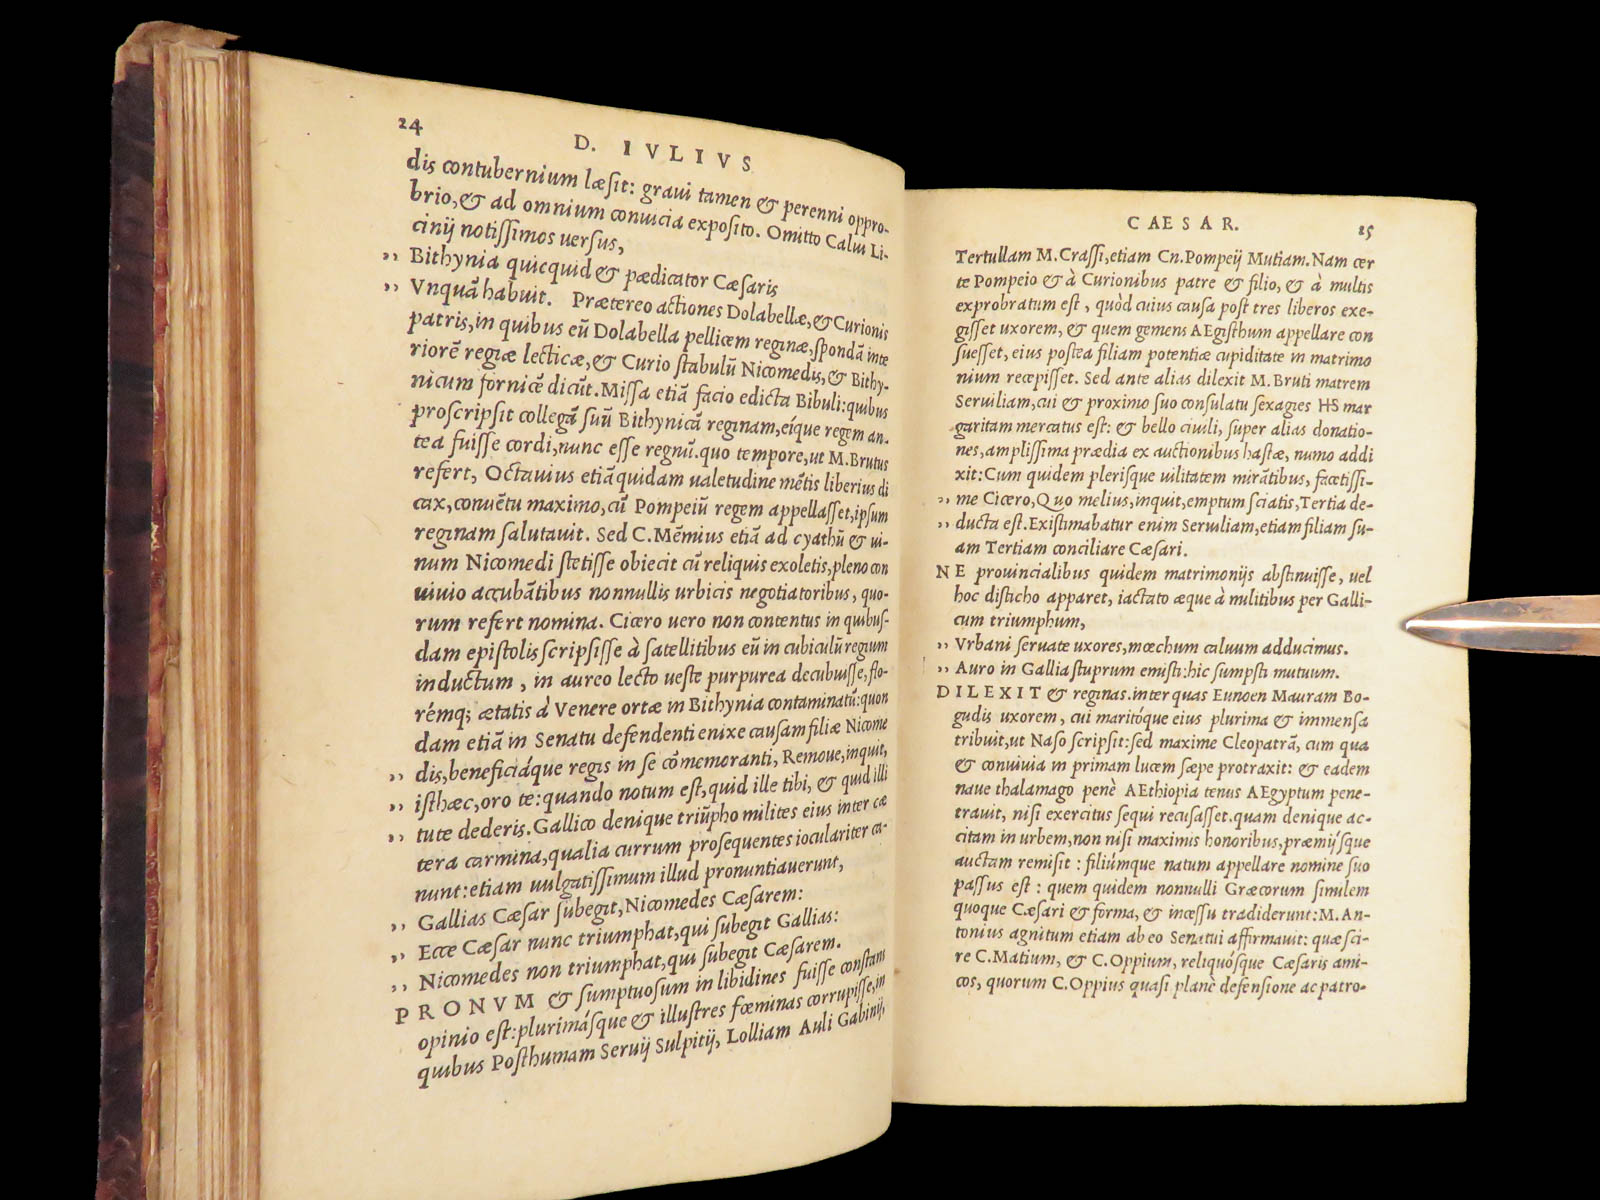 24
D. IVLIVS
dis contubernium læsit: graui tamen & perenni oppro-
brio, & ad omnium conuicia exposito. Omitto Calui Li-
cinij notissimos uersus,
,, Bithynia quicquid & pædicator Cæsaris
,, Vnquā habuit. Prætereo actiones Dolabellæ, & Curionis
patris, in quibus eū Dolabella pellicem reginæ, spondā inte
riorē regiæ lecticæ, & Curio stabulū Nicomedis, & Bithy-
nicum fornicē dicūt. Missa etiā facio edicta Bibuli: quibus
proscripsit collegā suū Bithynicā reginam, eíque regem an-
tea fuisse cordi, nunc esse regnū. quo tempore, ut M. Brutus
refert, Octauius etiā quidam ualetudine mētis liberius di
cax, conuētu maximo, cū Pompeiū regem appellasset, ipsum
reginam salutauit. Sed C. Mēmius etiā ad cyathū & ui-
num Nicomedi stetisse obiecit cū reliquis exoletis, pleno con
uiuio accubātibus nonnullis urbicis negotiatoribus, quo-
rum refert nomina. Cicero uero non contentus in quibus-
dam epistolis scripsisse à satellitibus eū in cubiculū regium
inductum, in aureo lecto ueste purpurea decubuisse, flo-
rémq; ætatis à Venere ortæ in Bithynia contaminatū: quon
dam etiā in Senatu defendenti enixe causam filiæ Nicome
,, dis, beneficiáque regis in se cōmemoranti, Remoue, inquit,
,, isthæc, oro te: quando notum est, quid ille tibi, & quid illi
,, tute dederis. Gallico denique triūpho milites eius inter cæ
tera carmina, qualia currum prosequentes ioculariter ca-
nunt: etiam uulgatissimum illud pronuntiauerunt,
,, Gallias Cæsar subegit, Nicomedes Cæsarem:
,, Ecce Cæsar nunc triumphat, qui subegit Gallias:
,, Nicomedes non triumphat, qui subegit Cæsarem.
PRONVM & sumptuosum in libidines fuisse constans
opinio est: plurimásque & illustres fœminas corrupisse, in
quibus Posthumam Seruij Sulpitij, Lolliam Auli Gabinij,
CAESAR. 25
Tertullam M. Crassi, etiam Cn. Pompeij Mutiam. Nam cer
te Pompeio & à Curionibus patre & filio, & à multis
exprobratum est, quòd cuius causa post tres liberos exe-
gisset uxorem, & quem gemens AEgisthum appellare con
suesset, eius postea filiam potentiæ cupiditate in matrimo
nium recepisset. Sed ante alias dilexit M. Bruti matrem
Seruiliam, cui & proximo suo consulatu sexagies HS mar
garitam mercatus est: & bello ciuili, super alias donatio-
nes, amplissima prædia ex auctionibus hastæ, numo addi
xit: Cum quidem plerisque uilitatem mirātibus, facetissi-
,, me Cicero, Quo melius, inquit, emptum sciatis, Tertia de-
,, ducta est. Existimabatur enim Seruiliam, etiam filiam su-
am Tertiam conciliare Cæsari.
NE prouincialibus quidem matrimonijs abstinuisse, uel
hoc disticho apparet, iactato æque à militibus per Galli-
cum triumphum,
,, Vrbani seruate uxores, mœchum caluum adducimus.
,, Auro in Gallia stuprum emisti: hic sumpsti mutuum.
DILEXIT & reginas. inter quas Eunoen Mauram Bo-
gudis uxorem, cui maritóque eius plurima & immensa
tribuit, ut Naso scripsit: sed maxime Cleopatrā, cum qua
& conuiuia in primam lucem sæpe protraxit: & eadem
naue thalamago penè AEthiopia tenus AEgyptum pene-
trauit, nisi exercitus sequi recusasset. quam denique ac-
citam in urbem, non nisi maximis honoribus, præmijsque
auctam remisit: filiúmque natum appellare nomine suo
passus est: quem quidem nonnulli Græcorum similem
quoque Cæsari & forma, & incessu tradiderunt: M. An-
tonius agnitum etiam ab eo Senatui affirmauit: quæ sci-
re C. Matium, & C. Oppium, reliquósque Cæsaris ami-
cos, quorum C. Oppius quasi planè defensione ac patro-